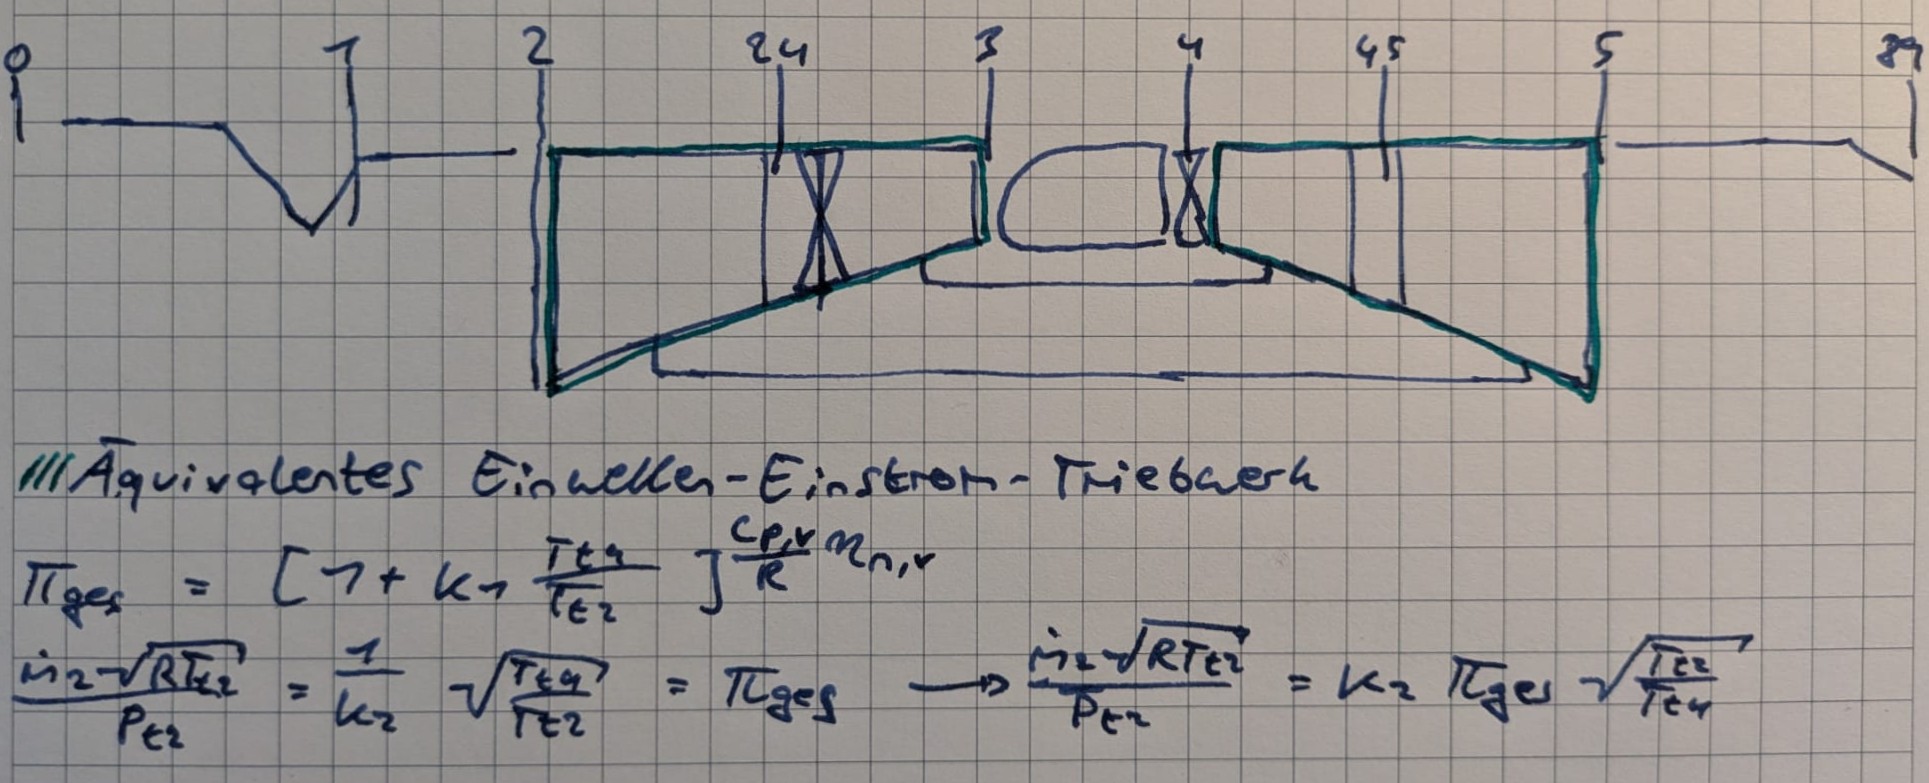 0 1 2 24 3 4 45 5 89
/// Äquivalentes Einwellen-Einstrom-Triebwerk
π_ges = [1 + K_1 T_t4/T_t2]^(c_p,v/R η_n,v)
ṁ_2√(RT_t2)/P_t2 = 1/K_2 √(T_t4/T_t2) = π_ges → ṁ_2√(RT_t2)/P_t2 = K_2 π_ges √(T_t2/T_t4)